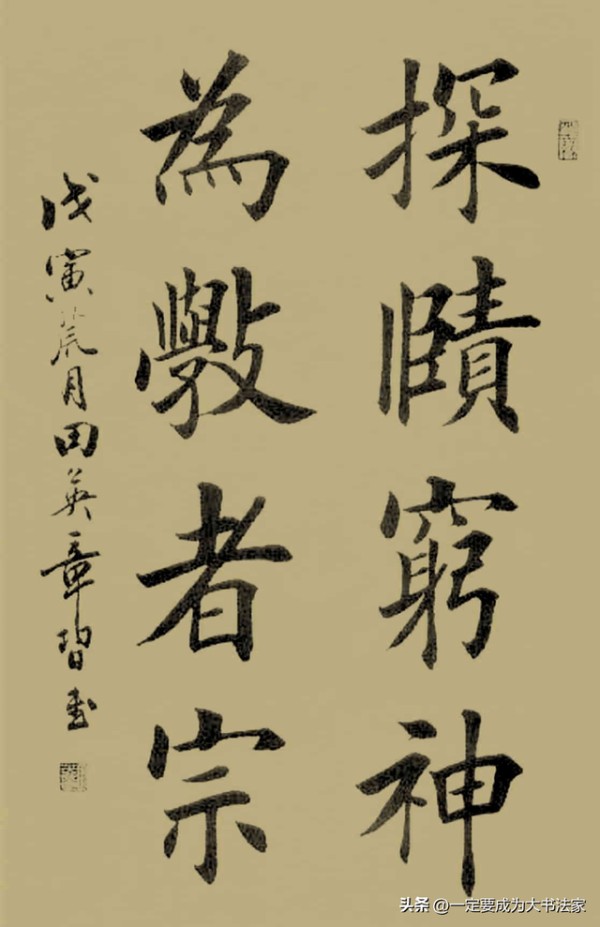 探賾窮神
為斆者宗
戊寅月田英章習書
头条 @一定要成为大书法家